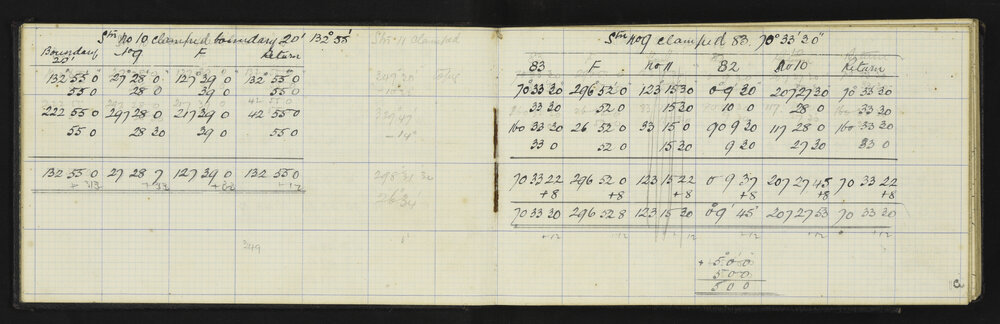 Stn No 10 clamped boundary 20' 132° 55'
Boundary 20' No 9 F Return
132° 55 0 27° 28' 0 127° 39 0 132° 55 0
55 0 28 0 39 0 55 0
222 55 0 297 28 0 217 39 0 42 55 0
55 0 28 30 39 0 55 0
132 55 0 27 28 7 127 39 0 132 55 0
Stn No 11 clamped
249
Stn No 9 clamped 83. 70° 33' 30"
83 F No 11 82 No 10 Return
70 33 30 296° 52 0 123 15 30 0° 9' 30" 207 27 30 70 33 30
33 30 52 0 15 30 10 0 28 0 33 30
160 33 30 26 52 0 33 15 0 90 9 30 117 28 0 160 33 30
33 0 52 0 15 30 9 30 27 30 33 0
70 33 22 296 52 0 123 15 22 0 9 37 207 27 45 70 33 22
+8 +8 +8 +8 +8 +8
70 33 30 296 52 8 123 15 30 0° 9 45 207 27 53 70 33 30
+12 +12 +12 +12 +12
+ 5 0 0
5 0 0
5 0 0